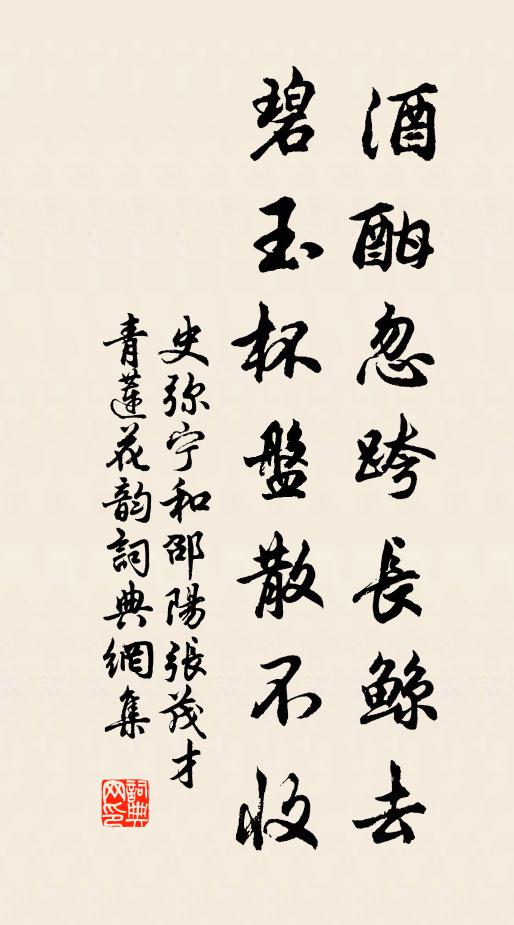 酒酣忽跨長鯨去
碧玉杯盤散不收
史弥宁和邵陽張茂才
青蓮花韵詞典網集
詞典
网印